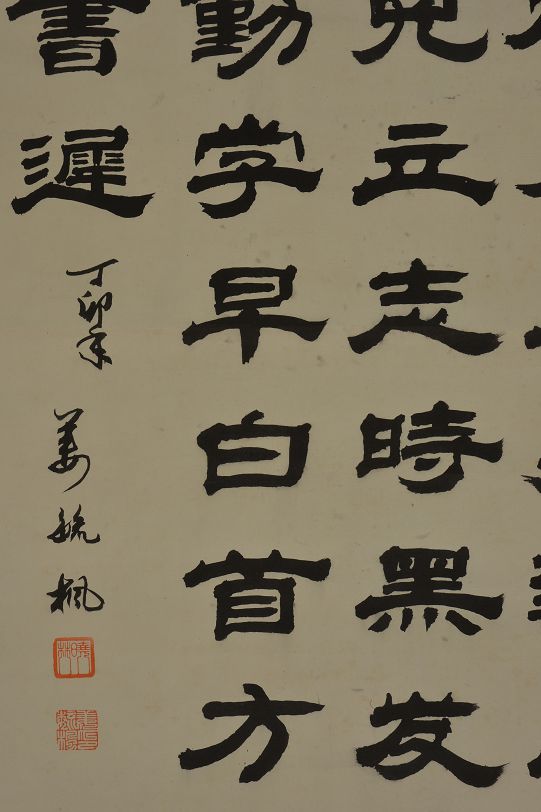 兒立志時黑发
勤学早白首方
書遲
丁卯年
姜毓枫